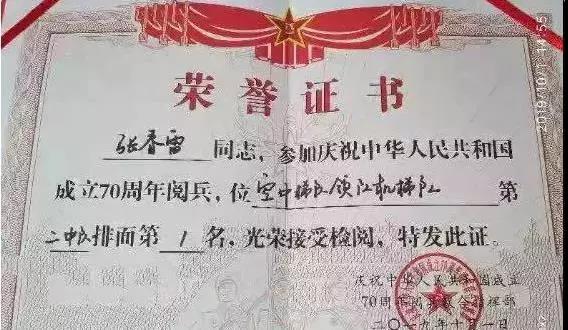 荣誉证书
张春雷 同志，参加庆祝中华人民共和国
成立70周年阅兵，位 空中梯队领队机梯队 第
二中队 排面第 1 名，光荣接受检阅，特发此证。
庆祝中华人民共和国成立
70周年阅兵联合指挥部
二〇一九年十月一日